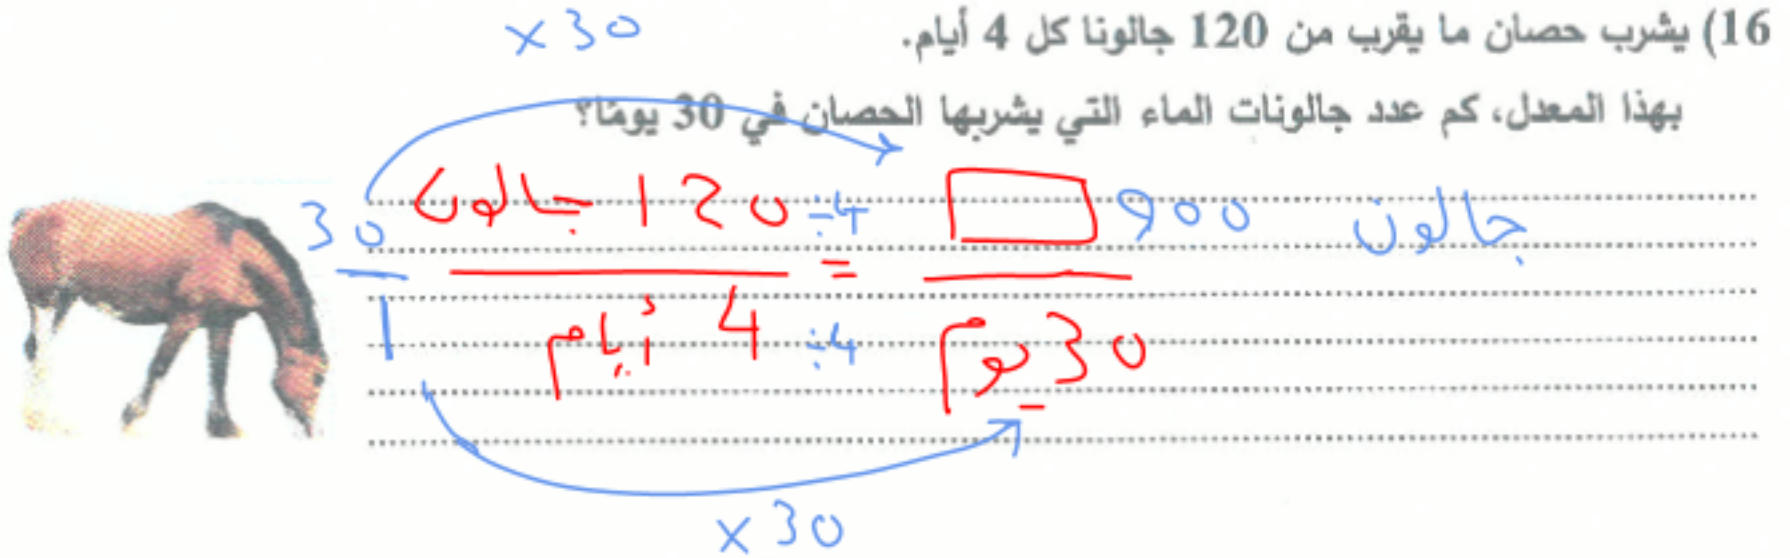 16) يشرب حصان ما يقرب من 120 جالونا كل 4 أيام.
بهذا المعدل، كم عدد جالونات الماء التي يشربها الحصان في 30 يومًا؟
×30
30 120 جالون ÷4 = 900 جالون
1 4 أيام ÷4 30 يوم
×30